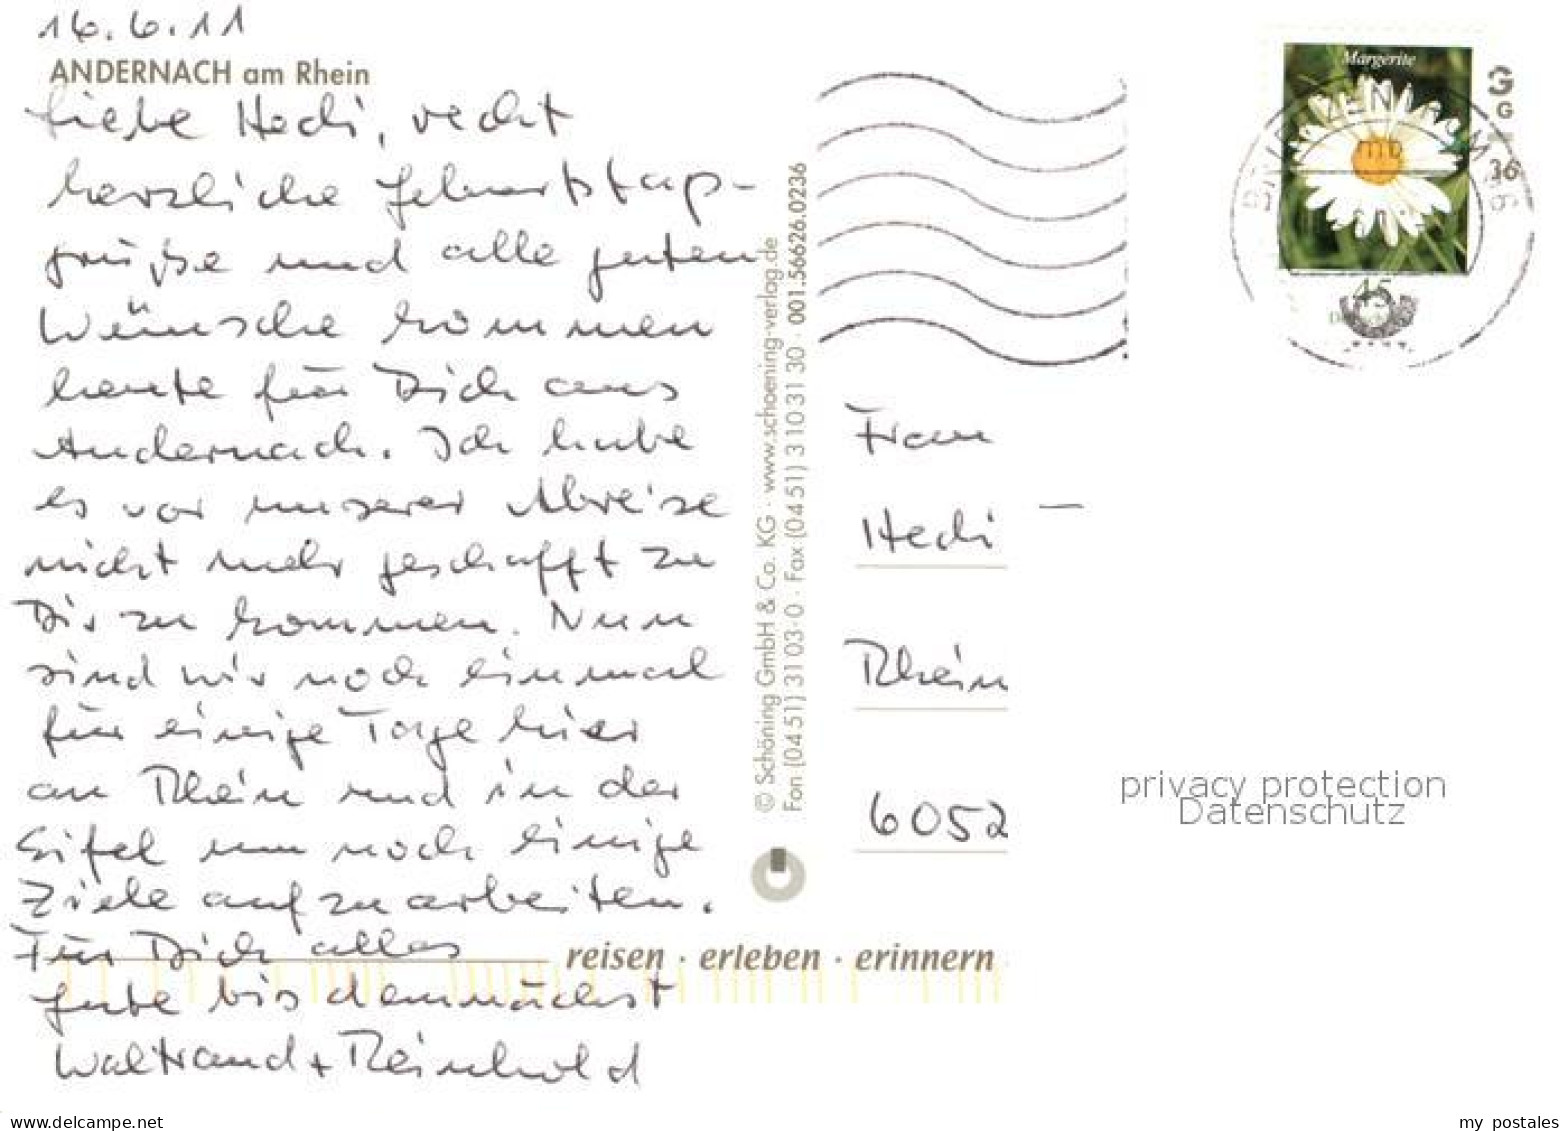 16.6.11
ANDERNACH am Rhein
Liebe Hedi, recht
herzliche Geburtstags-
grüße und alle guten
Wünsche kommen
heute für Dich aus
Andernach. Ich habe
es vor unserer Abreise
nicht mehr geschafft zu
Dir zu kommen. Nun
sind wir noch einmal
für einige Tage hier
am Rhein und in der
Eifel um noch einige
Ziele aufzuarbeiten.
Für Dich alles
Gute bis demnächst
Waltraud + Reinhold
reisen · erleben · erinnern
© Schöning GmbH & Co. KG · www.schoening-verlag.de
Fon (04 51) 3 10 3-0 · Fax (04 51) 3 10 31 30 · 001.56626.0236
Margerite
BRIEFZENTRUM
45
Frau
Hedi
Rhein
6052
privacy protection
Datenschutz
delcampe.net
my postales